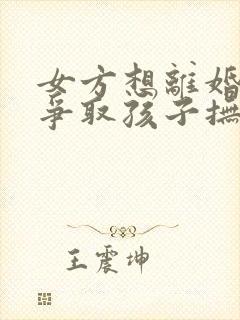 女方想離婚
爭取孩子撫
王震坤